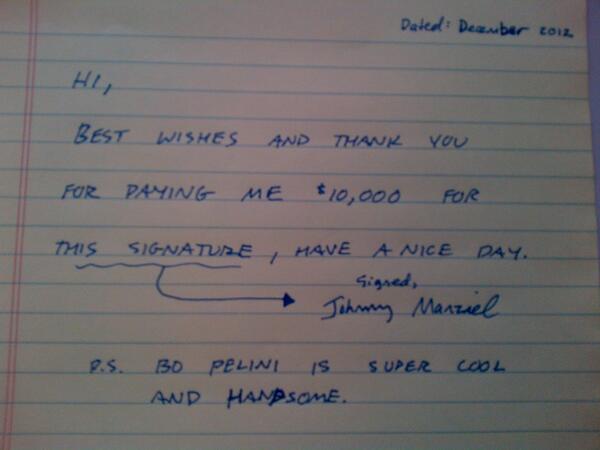 Dated: December 2012
HI,
BEST WISHES AND THANK YOU
FOR PAYING ME $10,000 FOR
THIS SIGNATURE, HAVE A NICE DAY.
Signed,
Johnny Manziel
P.S. BO PELINI IS SUPER COOL
AND HANDSOME.